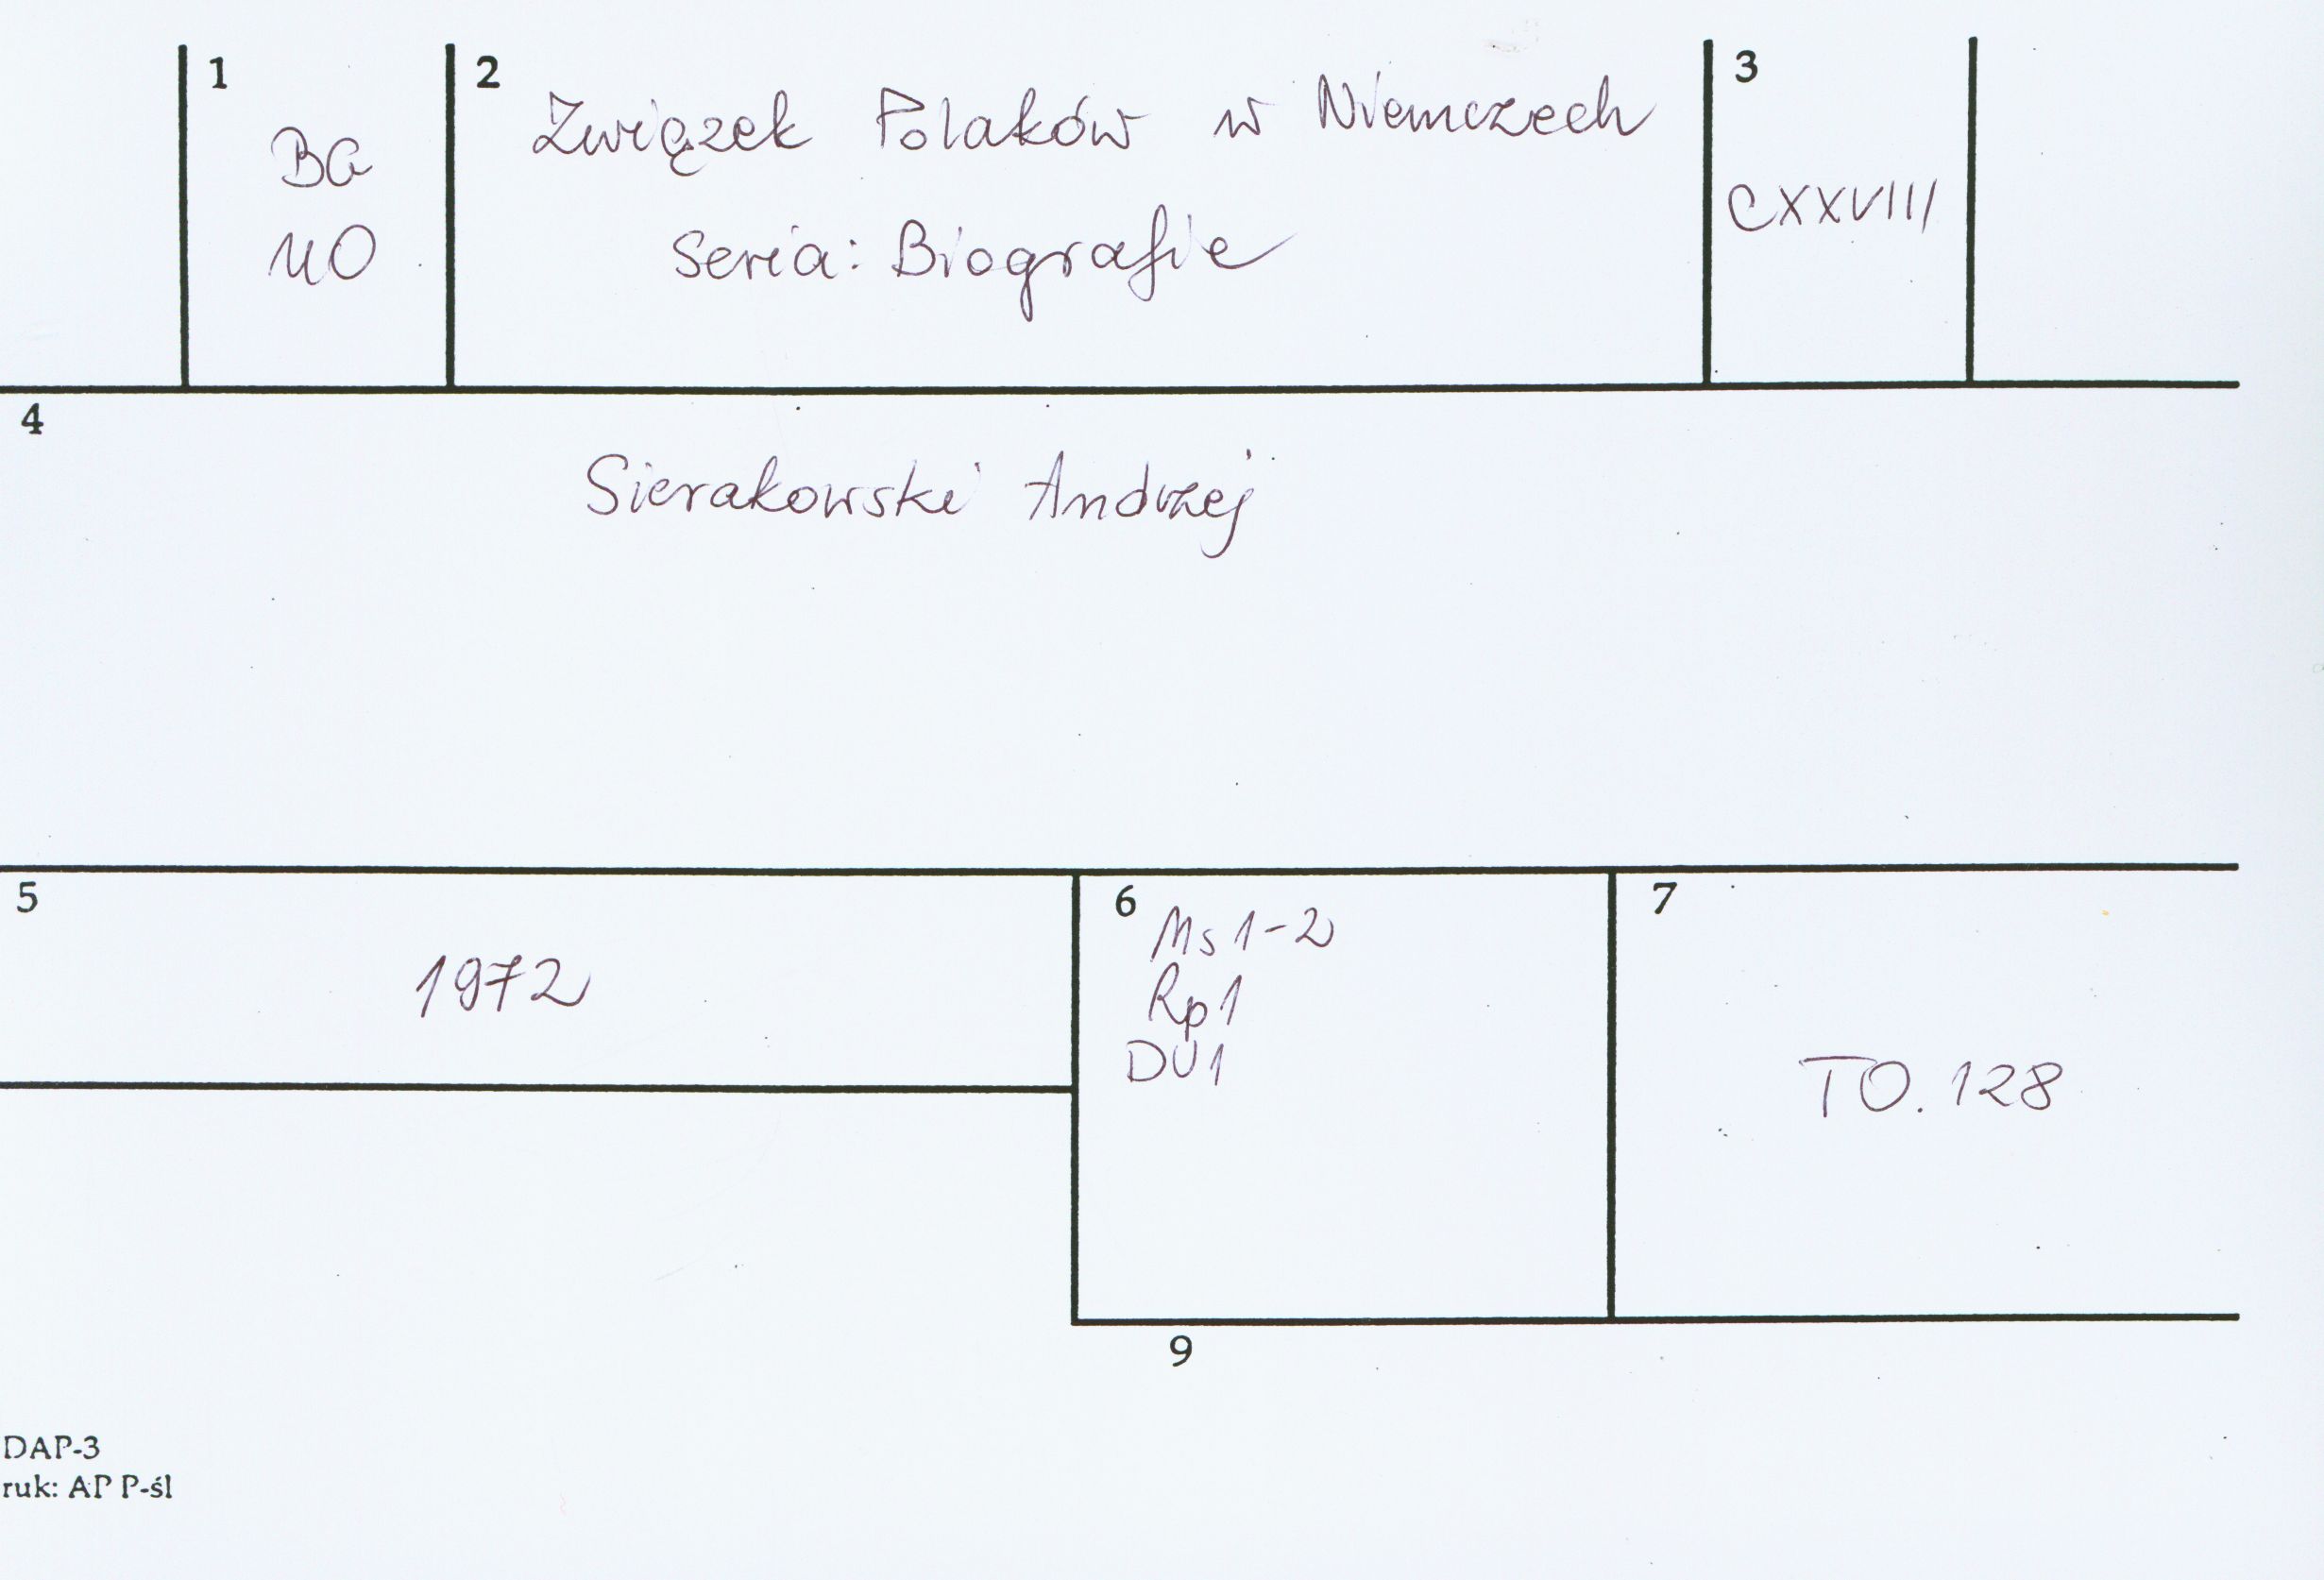 1
BG
UO
2
Związek Polaków w Niemczech
Seria: Biografie
3
CXXVIII
4
Sierakowski Andrzej
5
1972
6
Ms 1-2
Rp1
DU1
7
TO. 128
9
DAP-3
ruk: AP P-śl